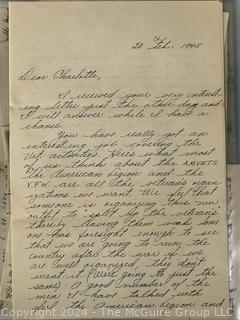 20 Feb. 1945
Dear Charlotte,
I received your very interest-
ing letter just the other day and
I will answer while I have a
chance.
You have really got an
interesting job covering the
Vet activities. Here's what most
of us think about the AMVETS.
The American Legion and the
V.F.W. are all the veterans organ-
izations we want. We say that
someone is organizing this new
outfit to split up the veterans
thereby leaving them weak. Some
one has foresight enough to see
that we are going to run the
country after the war if we
are well organized, they don't
want it (We're going to just the
same) A good number of the
men I have talked with
the American Legion and
Copyright 2024 - The McGuire Group LLC